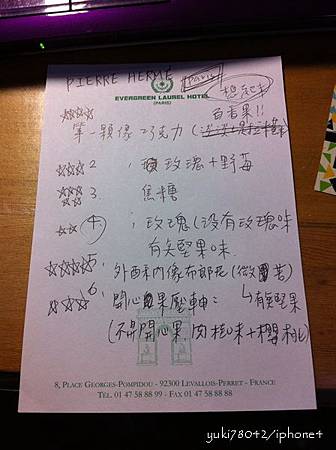 PIERRE HERMÉ (Paris)
EVERGREEN LAUREL HOTEL
(PARIS)
想起來
百香果!!
☆☆☆☆
第一顆像巧克力(
☆☆☆☆ 2 、 玫瑰+野莓
☆☆☆ 3. 焦糖
☆☆ 4. 、 玫瑰(没有玫瑰味
有关堅果味
☆☆☆☆ 5、 外西米内像布郎尼(微苦)
☆☆☆ 6、 開心果壓軸: ↳有关堅果
(不是開心果,肉桂味+櫻桃)
8, PLACE GEORGES-POMPIDOU - 92300 LEVALLOIS-PERRET - FRANCE
TÉL. 01 47 58 88 99 - FAX 01 47 58 88 88
yuki78042/iphone4